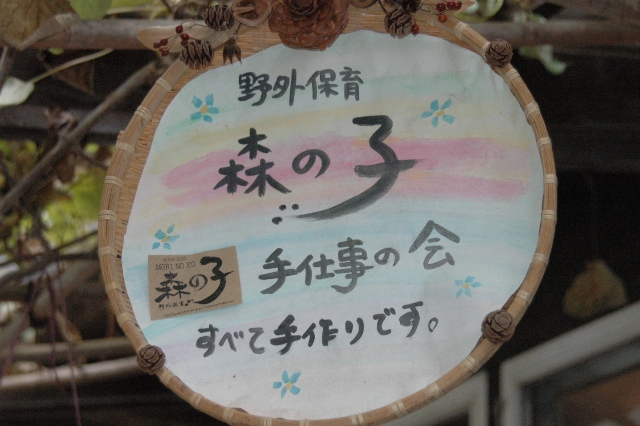 野外保育
森の子
手仕事の会
MORI NO KO
森の子
野外保育
すべて手作りです。